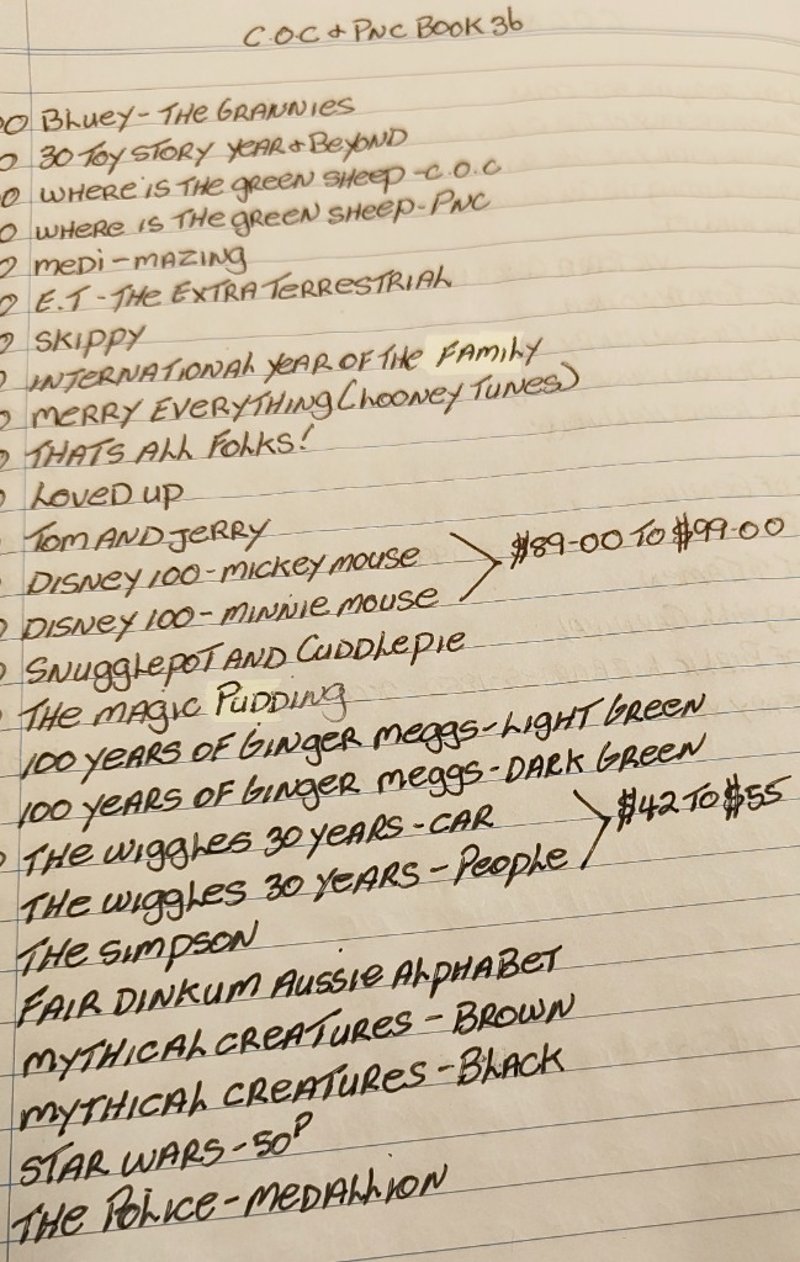 C.O.C + PNC BOOK 36
BLUEY - THE GRANNIES
30 TOY STORY YEAR + BEYOND
WHERE IS THE GREEN SHEEP - C.O.C
WHERE IS THE GREEN SHEEP - PNC
MEDI - MAZING
E.T - THE EXTRA TERRESTRIAL
SKIPPY
INTERNATIONAL YEAR OF THE FAMILY
MERRY EVERYTHING (LOONEY TUNES)
THATS ALL FOLKS!
LOVED UP
TOM AND JERRY
DISNEY 100 - MICKEY MOUSE
$89-00 TO $99-00
DISNEY 100 - MINNIE MOUSE
SNUGGLEPOT AND CUDDLEPIE
THE MAGIC PUDDING
100 YEARS OF GINGER MEGGS - LIGHT GREEN
100 YEARS OF GINGER MEGGS - DARK GREEN
THE WIGGLES 30 YEARS - CAR
$42 TO $55
THE WIGGLES 30 YEARS - PEOPLE
THE SIMPSON
FAIR DINKUM AUSSIE ALPHABET
MYTHICAL CREATURES - BROWN
MYTHICAL CREATURES - BLACK
STAR WARS - 50P
THE POLICE - MEDALLION